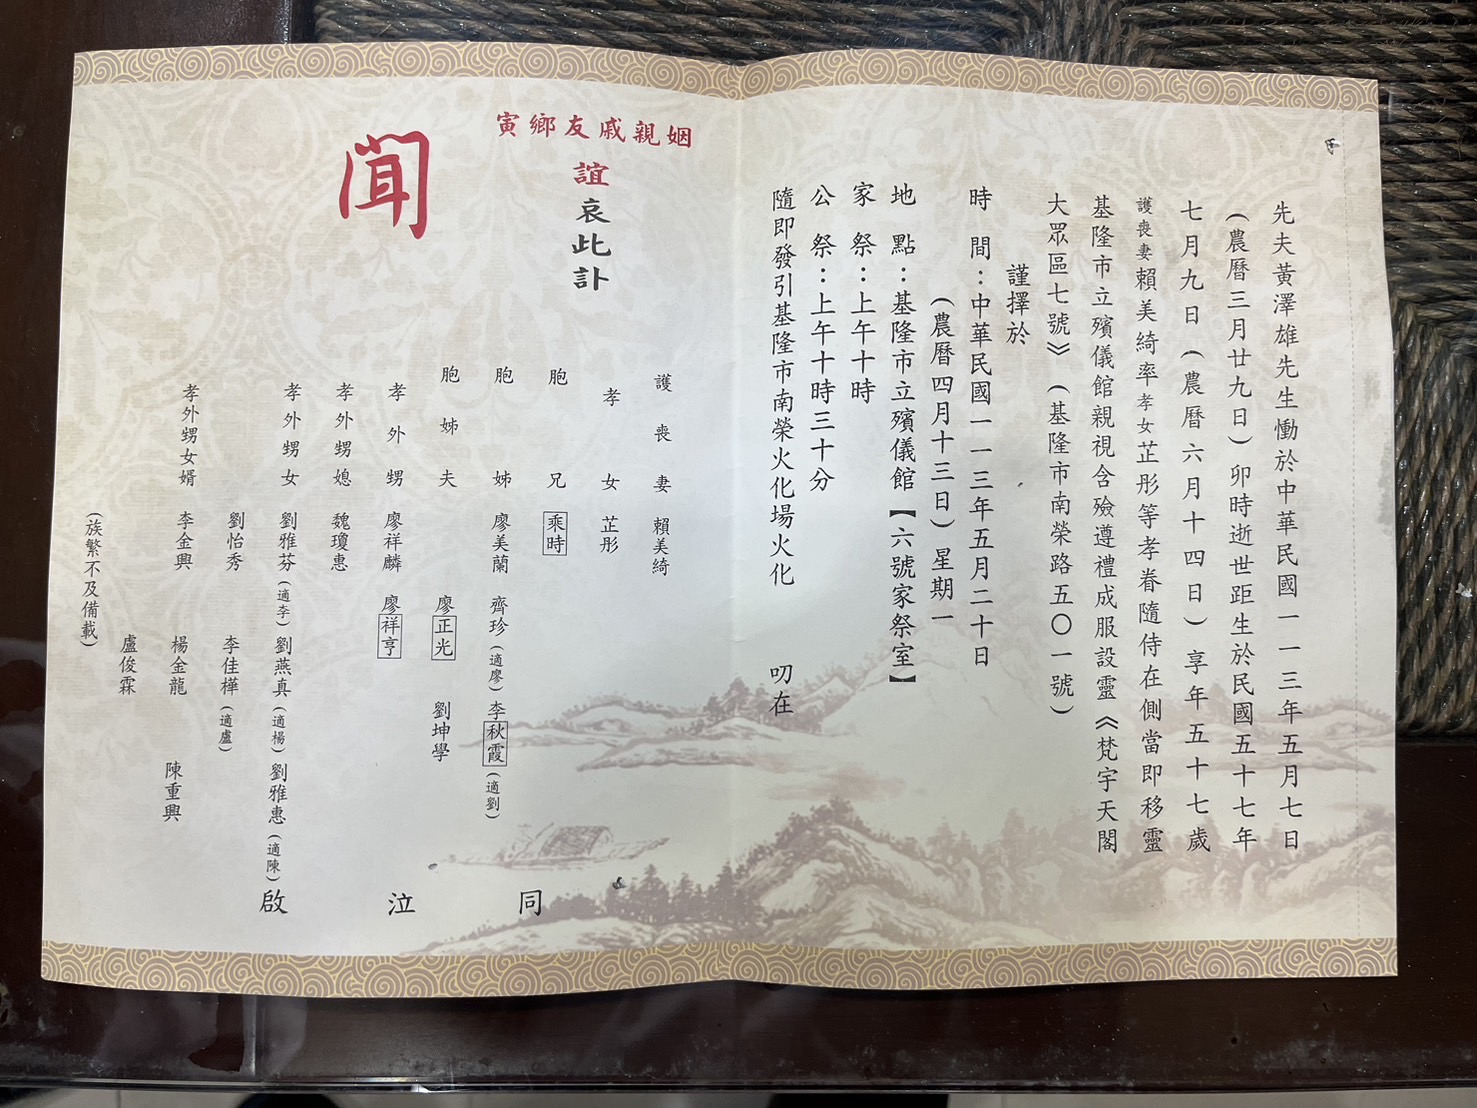 先夫黃澤雄先生慟於中華民國一一三年五月七日
(農曆三月廿九日)卯時逝世距生於民國五十七年
七月九日(農曆六月十四日)享年五十七歲
護喪妻賴美綺率孝女芷彤等孝眷隨侍在側當即移靈
基隆市立殯儀館親視含殮遵禮成服設靈《梵宇天閣
大眾區七號》(基隆市南榮路五〇一號)
謹擇於
時間:中華民國一一三年五月二十日
(農曆四月十三日)星期一
地點:基隆市立殯儀館【六號家祭室】
家祭:上午十時
公祭:上午十時三十分
隨即發引基隆市南榮火化場火化 叨在
姻親戚友鄉寅
誼哀此訃
聞
護喪妻 賴美綺
孝女 芷彤
胞兄 乘時
胞姊 廖美蘭 齊珍(適廖) 李秋霞(適劉)
胞姊夫 廖正光 劉坤學
孝外甥 廖祥麟 廖祥亨
孝外甥媳 魏瓊惠
孝外甥女 劉雅芬(適李) 劉燕真(適楊) 劉雅惠(適陳)
劉怡秀 李佳樺(適盧)
孝外甥女婿 李金興 楊金龍 陳重興
盧俊霖
(族繁不及備載)
同泣啟